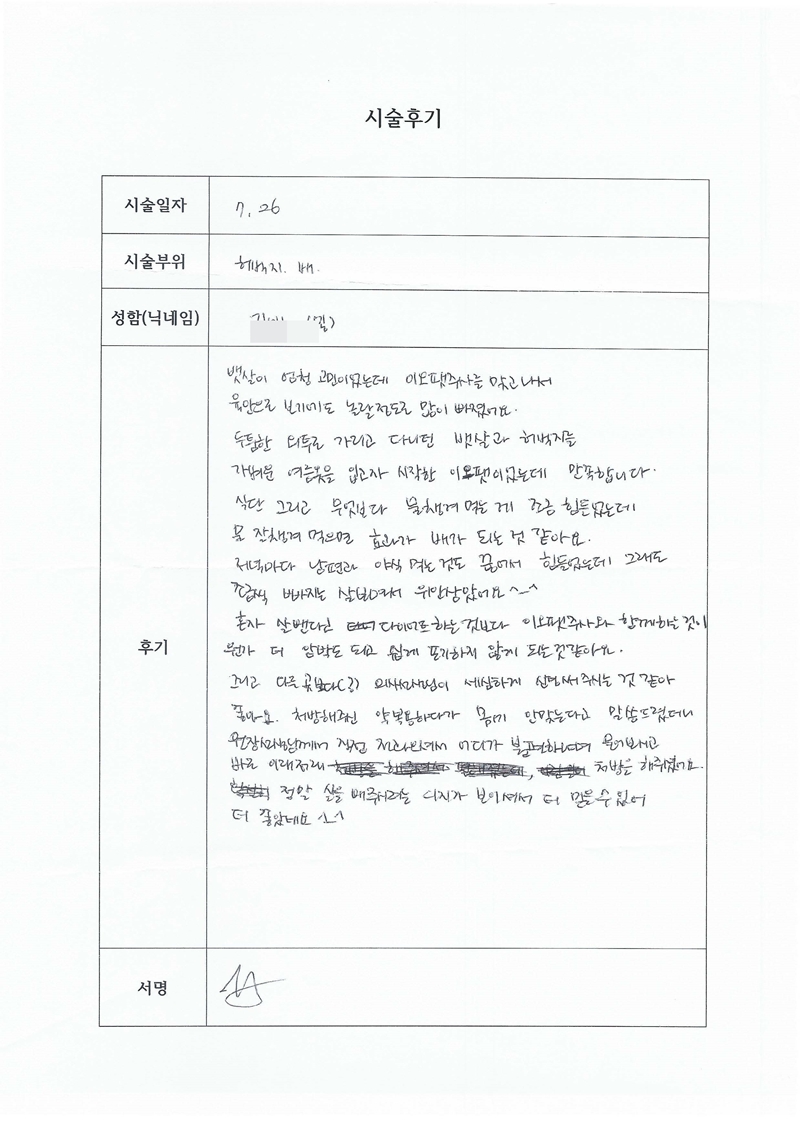 시술후기
시술일자
7. 26
시술부위
허벅지. 배.
성함(닉네임)
후기
뱃살이 엄청 고민이었는데 이오팻주사를 맞고나서
육안으로 보기에도 놀랄정도로 많이 빠졌어요.
두툼한 외투로 가리고 다니던 뱃살과 허벅지를
가벼운 여름옷을 입고자 시작한 이오팻이었는데 만족합니다.
식단 그리고 무엇보다 물챙겨 먹는 게 조금 힘든었는데
물 잘챙겨 먹으면 효과가 배가 되는 것 같아요.
저녁마다 남편과 야식 먹는것도 끊어서 힘들었는데 그래도
조금씩 빠지는 살보면서 위안삼았어요 ^-^
혼자 살뺀다고 다이어트하는것보다 이오팻주사와 함께하는 것이
뭔가 더 압박도 되고 쉽게 포기하지 않게 되는것같아요.
그리고 다른 곳보다(?) 의사선생님이 세심하게 신경써주시는 것 같아
좋아요. 처방해주신 약복용하다가 몸에 안맞는다고 말씀드렸더니
원장선생님께서 직접 어디가 불편하냐며 물어보시고
바로 처방을 해주셨거요.
정말 살을 빼주시려는 의지가 보이셔서 더 믿을수있어
더 좋았네요 ^-^
서명